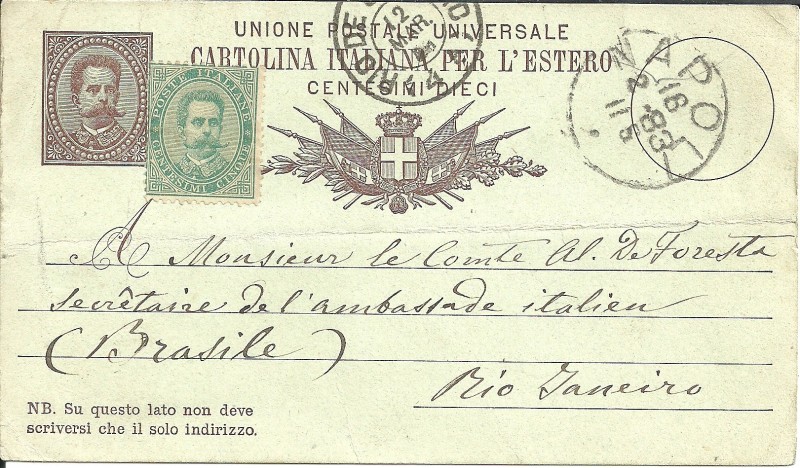 UNIONE POSTALE UNIVERSALE
CARTOLINA ITALIANA PER L'ESTERO
CENTESIMI DIECI
POSTE ITALIANE
CENTESIMI CINQUE
RIO DE
12
MAR.
NAPOLI
2
18
83
11 S
A Monsieur le Comte Al. De Foresta
secrêtaire de l'ambassade italien
(Brasile)
Rio Janeiro
NB. Su questo lato non deve
scriversi che il solo indirizzo.